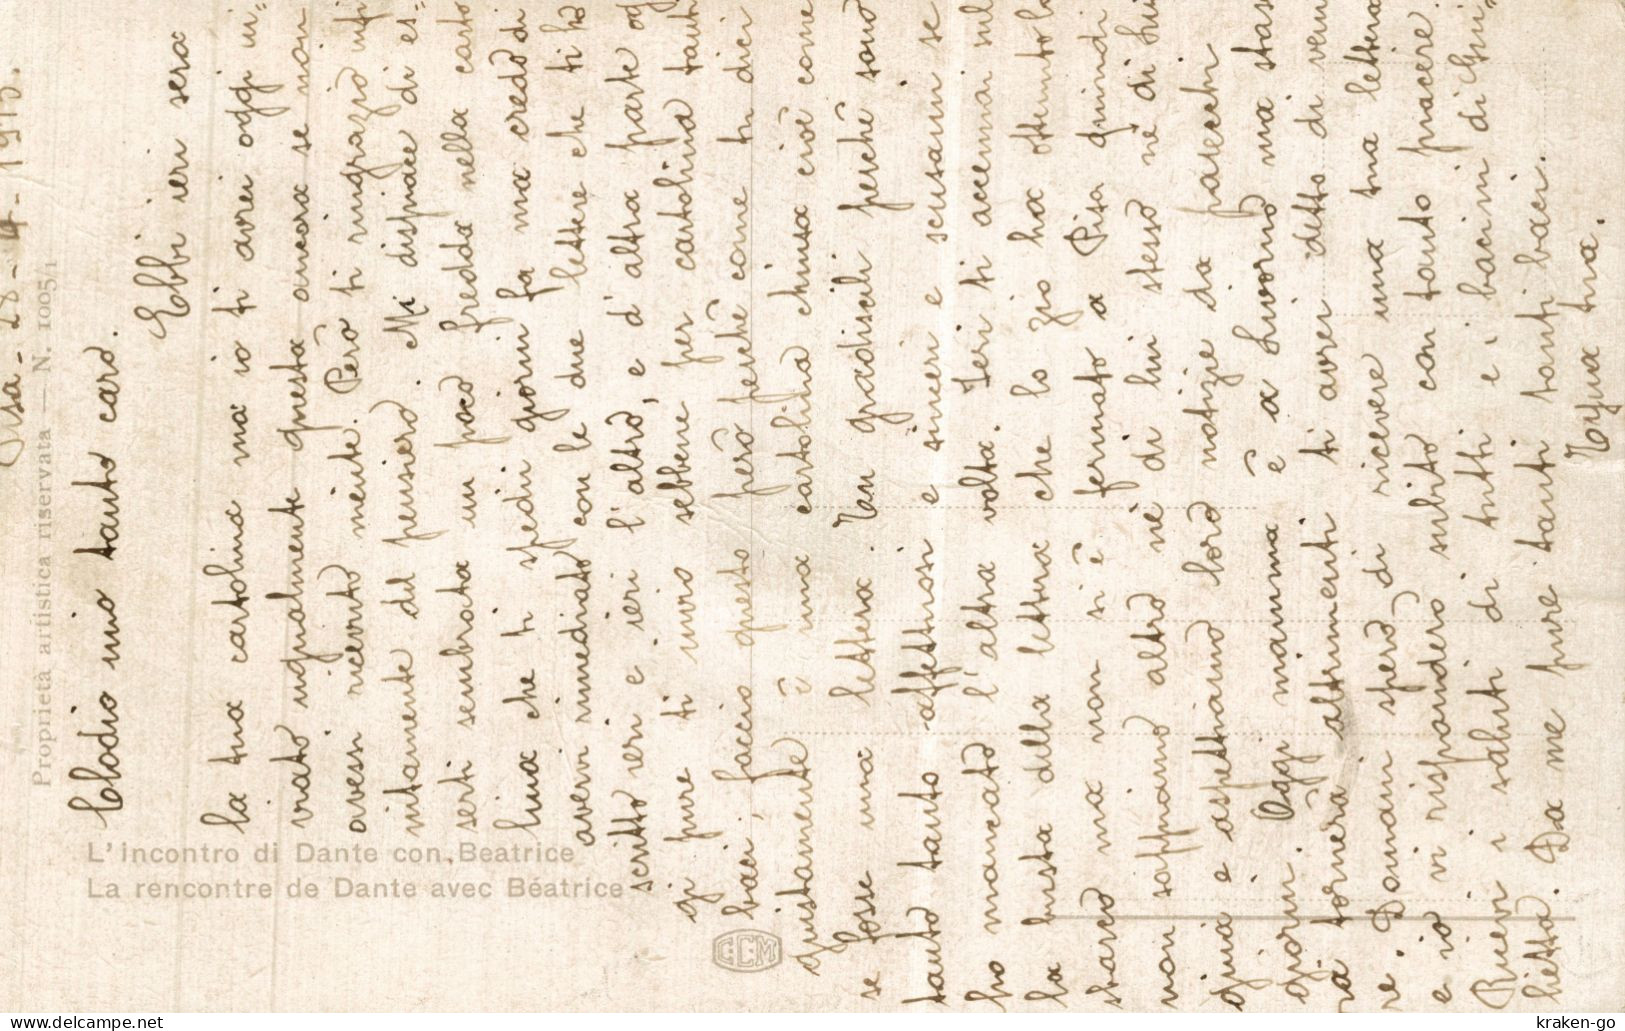 Pisa - 28 - 4 - 1915.
Clodio mio tanto caro.
Ebbi ieri sera
la tua cartolina ma io ti avrei oggi in=
viato ugualmente questa ancora se non
avessi ricevuto niente. Però ti ringrazio infi
nitamente del pensiero. Mi dispiace di es=
serti sembrata un poco fredda nella carto
lina che ti spedii giorni fa ma credo di
averti rimediato con le due lettere che ti ho
scritto ieri e ieri l'altro, e d'altra parte og
gi pure ti invio sebbene per cartolina tanti
baci, faccio questo però perchè come tu dici
giustamente è una cartolina chiusa cioè come
se fosse una lettera. Ten gradiscili perchè sono
tanto tanto affettuosi e sinceri e scusami se
ho mancato l'altra volta. Ieri ti accennai sul
la busta della lettera che lo zio ha ottenuto lo
sbarco ma non si è fermato a Pisa quindi
non sappiamo altro nè di lui stesso nè di Lui
gia e aspettiamo loro notizie da parecchi
giorni. Oggi mamma è a Livorno ma stase
ra tornerà altrimenti ti avrei detto di veni
re. Domani spero di ricevere una tua lettera
e io vi risponderò subito con tanto piacere.
Ricevi i saluti di tutti e i bacini di Chi=
hetta. Da me pure tanti tanti baci.
Tua
Proprietà artistica riservata — N. 1005/1
L'incontro di Dante con Beatrice
La rencontre de Dante avec Béatrice
CCM
kraken-go